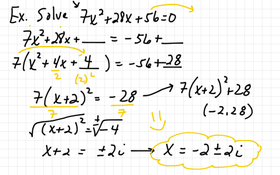 Ex. Solve 7x²+28x+56=0
7x²+28x+___ = -56+___
7(x²+4x+4) = -56+28
4/2 (2)²
7(x+2)²/7 = -28/7 → 7(x+2)²+28
(-2,28)
√(x+2)² = ±√-4
x+2 = ±2i → x = -2±2i